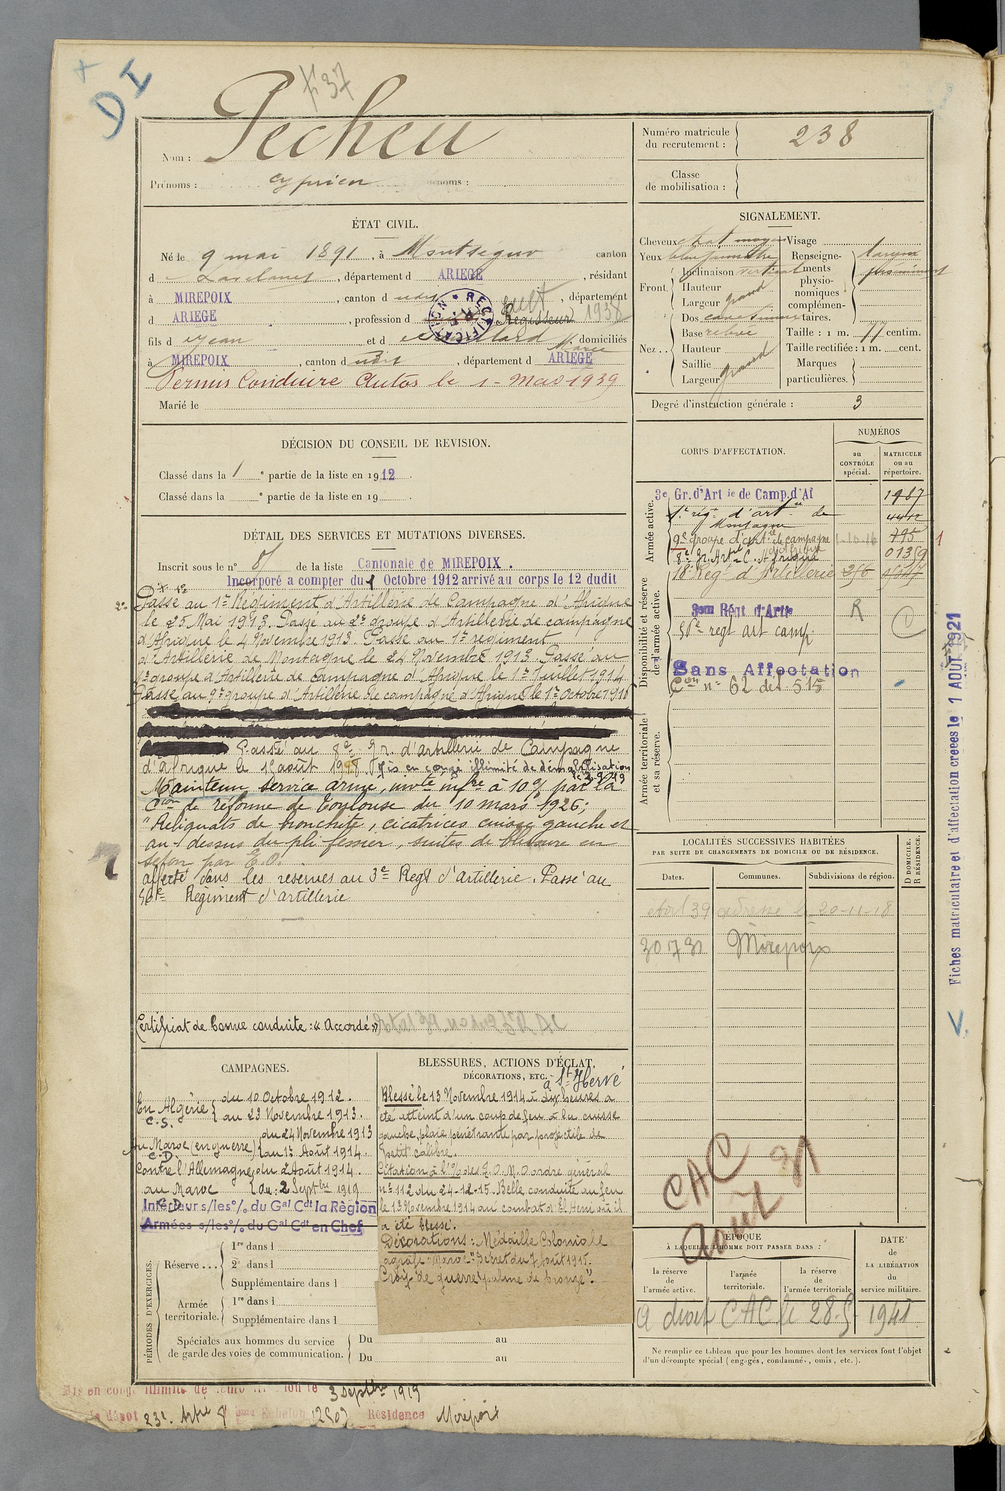 DI
F 37
Nom : Pecheu
Prénoms : Cyprien
ÉTAT CIVIL.
Né le 9 mai 1891, à Montségur canton
d Lavelanet, département d ARIEGE, résidant
à MIREPOIX, canton d udit, département
d ARIEGE, profession d Cult 1938
fils d Jean et d domiciliés
à MIREPOIX, canton d udit, département d ARIEGE
Permis Conduire Autos le 1- Mas 1939
Marié le
DÉCISION DU CONSEIL DE REVISION.
Classé dans la 1e partie de la liste en 1912
Classé dans la e partie de la liste en 19 .
DÉTAIL DES SERVICES ET MUTATIONS DIVERSES.
Inscrit sous le n° 81 de la liste Cantonale de MIREPOIX .
Incorporé a compter du 1 Octobre 1912 arrivé au corps le 12 dudit
Passé au 1er Régiment d'Artillerie de Campagne d'Afrique
le 25 Mai 1913. Passé au 2e groupe d'Artillerie de campagne
d'Afrique le 4 Novembre 1913. Passé au 1er regiment
d'Artillerie de Montagne le 24 Novembre 1913. Passé au
groupe d'Artillerie de campagne d'Afrique le 1er Juillet 1914.
Passé au 9e groupe d'Artillerie de campagne d'Afrique le 1er octobre 1916
Passé au 8e Gr. d'artillerie de Campagne
d'afrique le 1er août 1918 Mis en congé illimité de démobilisation
le 3.9.19
Maintenu service armé, invté infre à 10% par la
Con de réforme de Toulouse du 10 mars 1926;
"Reliquats de bronchite, cicatrices cuisse gauche et
au-dessus du pli fessier, suites de blessure en
séton par E.O.
affecté dans les reserves au 3e Regt d'Artillerie. Passé au
56e Régiment d'artillerie
Certificat de bonne conduite : « Accordé »
CAMPAGNES.
En Algérie du 10 Octobre 1912.
C.S. au 23 Novembre 1913.
Au Maroc (en guerre) du 24 Novembre 1913
C.D. au 1er Août 1914.
Contre l'Allemagne du 2 Août 1914.
au Maroc au 2 Septbre 1919
Intérieur s/les °/. du Gal Cdt la Région
Armées s/les °/. du Gal Cdt en Chef
PÉRIODES D'EXERCICES.
Réserve... 1re dans l
2e dans l
Supplémentaire dans l
Armée territoriale. 1re dans l
Supplémentaire dans l
Spéciales aux hommes du service
de garde des voies de communication.
Du au
Du au
BLESSURES, ACTIONS D'ÉCLAT,
DÉCORATIONS, ETC.
Blessé le 13 Novembre 1914 à dix heures a
été atteint d'un coup de feu à la cuisse
gauche, plaie pénétrante par projectile de
petit calibre.
Citation à l'O. des T.O.M.O ordre général
n° 112 du 24-12-15. Belle conduite au feu
le 13 Novembre 1914 au combat d'El Hern où il
a été blessé.
Décorations : Médaille Coloniale
agrafe "Maroc". Décret du 7 Août 1915.
Croix de guerre "palme de bronze".
Mis en congé illimité de le 3 Septbre 1919
dépôt 23e Artie Echelon (250) Résidence Mirepoix
Numéro matricule
du recrutement : 238
Classe
de mobilisation :
SIGNALEMENT.
Cheveux chat moyen Visage
Yeux
Front Inclinaison vertical
Hauteur
Largeur grand
Nez .. Dos
Base relevé
Hauteur
Saillie
Largeur grand
Renseignements physionomiques complémentaires.
Taille : 1 m. 77 centim.
Taille rectifiée : 1 m. cent.
Marques
particulières.
Degré d'instruction générale : 3
CORPS D'AFFECTATION.
NUMÉROS
au CONTRÔLE spécial.
MATRICULE ou au répertoire.
Armée active.
3e Gr. d'Art ie de Camp. d'Af 1987
1er rég. d'artie de
Montagne
9e groupe d'artie de campagne 795
8e Gr. Art. C. Afrique 01359
18e Reg. d'Artillerie
Disponibilité et réserve
de l'armée active.
3eme Régt d'Artie R
56e regt art camp.
Sans Affectation
Con n° 62 del 515
Armée territoriale
et sa réserve.
LOCALITÉS SUCCESSIVES HABITÉES
PAR SUITE DE CHANGEMENTS DE DOMICILE OU DE RÉSIDENCE.
Dates. Communes. Subdivisions de région.
D DOMICILE.
R RÉSIDENCE.
30 7 31 Mirepoix
CAC
Août 31
ÉPOQUE
À LAQUELLE L'HOMME DOIT PASSER DANS :
la réserve de l'armée active.
l'armée territoriale.
la réserve de l'armée territoriale
DATE de LA LIBÉRATION du service militaire.
a droit CAC le 28.5. 1941
Ne remplir ce tableau que pour les hommes dont les services font l'objet
d'un décompte spécial (engagés, condamnés, omis, etc.).
Fiches matriculaire et d'affectation creees le 1 AOUT 1921